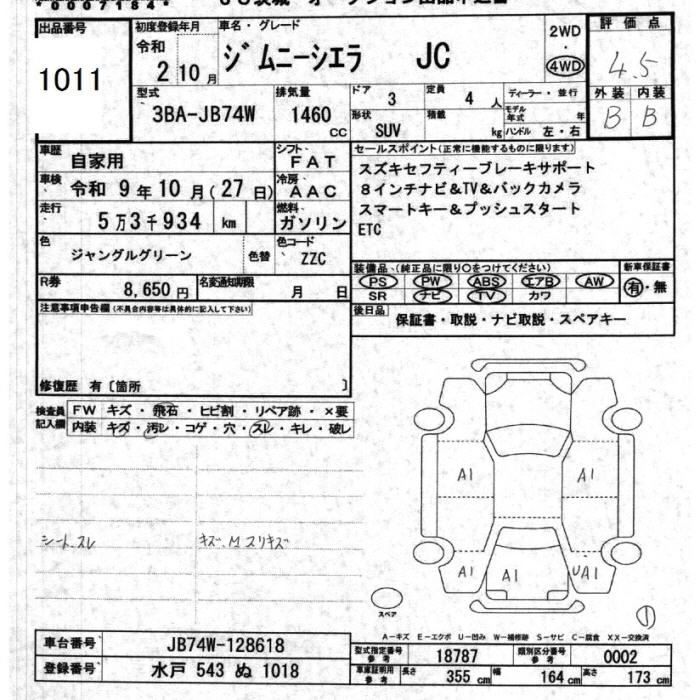 *00007184*
出品番号
1011
初度登録年月
令和
2 10月
車名・グレード
ジムニーシエラ JC
2WD
4WD
評価点
4.5
外装 内装
B B
型式
3BA-JB74W
排気量
1460 cc
ドア 3
定員 4 人
形状 SUV
積載 kg
ディーラー・並行
モデル年式 年
ハンドル 左・右
車歴
自家用
シフト
FAT
車検
令和 9年10月(27日)
冷房
AAC
走行
5万3千934 km
燃料
ガソリン
色
ジャングルグリーン 色替
色コード
ZZC
R券
8,650円
名変通知期限
月 日
セールスポイント(正常に機能するものに限ります)
スズキセフティーブレーキサポート
8インチナビ&TV&バックカメラ
スマートキー&プッシュスタート
ETC
装備品(純正品に限り○をつけてください)
PS PW ABS エアB AW
SR ナビ TV カワ
新車保証書
有・無
後日品
保証書・取説・ナビ取説・スペアキー
注意事項申告欄(不具合内容等は具体的に記入して下さい)
修復歴 有〔箇所 〕
検査員記入欄
FW キズ・飛石・ヒビ割・リペア跡・×要
内装 キズ・汚レ・コゲ・穴・スレ・キレ・破レ
シートスレ
キズ.M スリキズ
A1 A1
A1 A1 UA1
スペア
①
A-キズ E-エクボ U-凹み W-補修跡 S-サビ C-腐食 XX-交換済
車台番号
JB74W-128618
登録番号
水戸 543 ぬ 1018
型式指定番号
参考
18787
類別区分番号
参考
0002
車庫証明用
参考
長さ 355 cm
幅 164 cm
高さ 173 cm